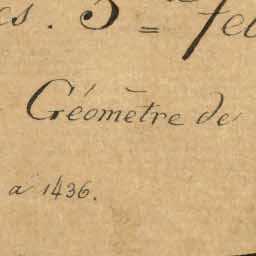 es. 3= fe
Géomētre de
a 1436.